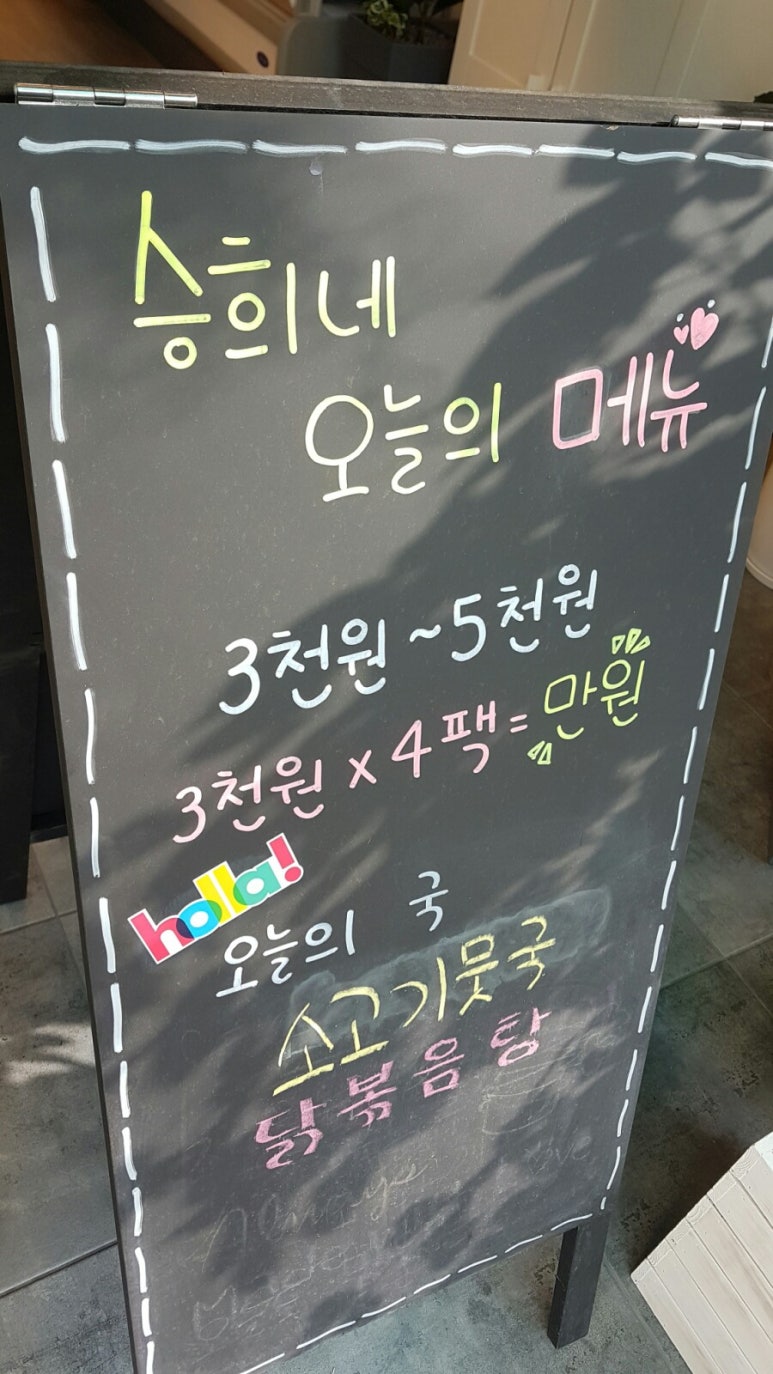 승희네
오늘의 메뉴
3천원~5천원
3천원 x 4팩 = 만원
holla!
오늘의 국
소고기뭇국
닭볶음탕